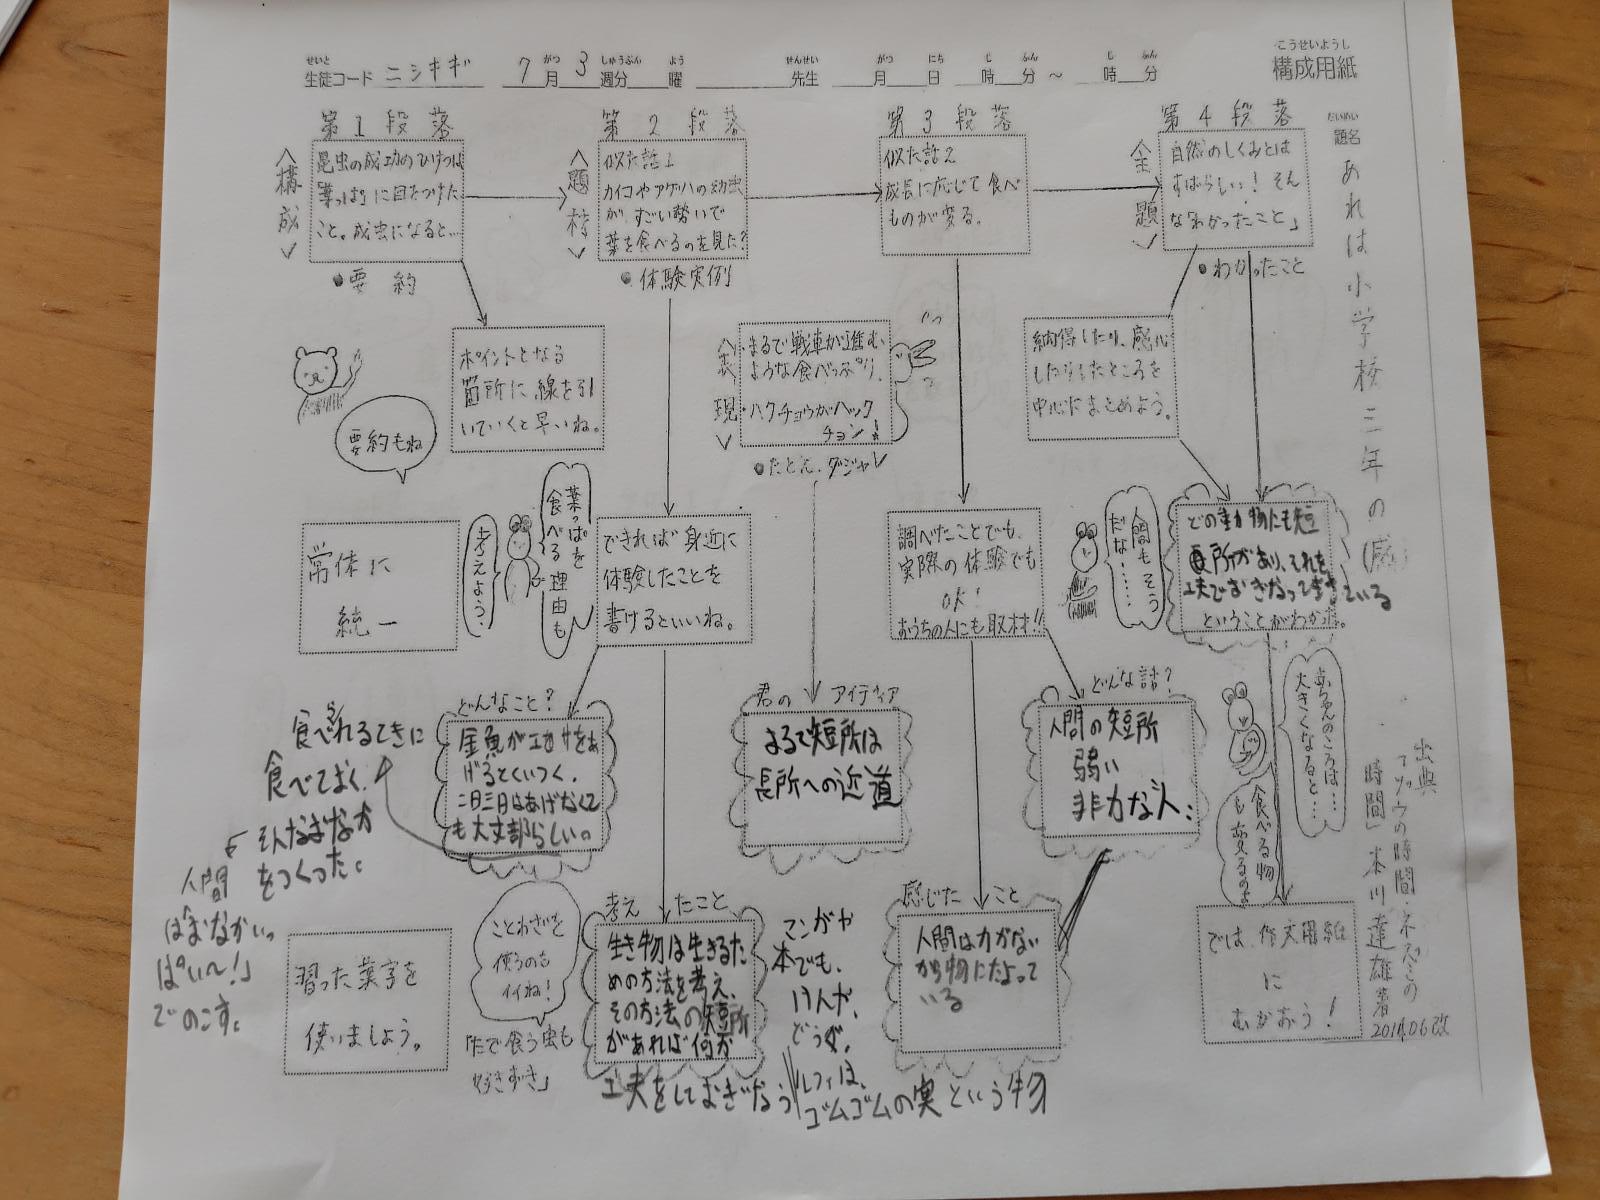 構成用紙
こうせいようし
生徒コード ニシキギ 7月3週分 曜 先生 月 日 時 分 ～ 時 分
せいと がつ しゅうぶん よう せんせい がつ にち じ ふん じ ふん
題名
だいめい
あれは小学校二年の(感)
出典
「ゾウの時間・ネズミの
時間」本川達雄著
2014.06改
第1段落
<構成>
昆虫の成功のひけつは
「葉っぱ」に目をつけた
こと。成虫になると…
●要約
ポイントとなる
箇所に線を引
いていくと早いね。
要約もね
常体に
統一
習った漢字を
使いましょう。
第2段落
<題材>
似た話1
カイコやアゲハの幼虫
が、すごい勢いで
葉を食べるのを見た?
●体験実例
できれば身近に
体験したことを
書けるといいね。
葉っぱを
食べる理由も
考えよう。
どんなこと?
金魚がエサをあ
げるとくいつく。
二日三日はあげなくて
も大丈夫らしい。
食べれるときに
食べておく
そんなおなか
をつくった。
人間
は「おなかいっ
ぱい～!」
でのこす。
考えたこと
生き物は生きるた
めの方法を考え、
その方法の短所
があれば何か
工夫をしておぎなう
ことわざを
使うのも
イイね!
「たで食う虫も
好きずき」
<表現>
・まるで戦車が進む
ような食べっぷり。
・ハクチョウがハック
チョン!
●たとえ、ダジャレ
君のアイディア
まるで短所は
長所への近道
第3段落
似た話2
成長に応じて食べ
ものが変る。
調べたことでも、
実際の体験でも
OK!
おうちの人にも取材!!
どんな話?
人間の短所
弱い
非力な人、
感じたこと
人間は力がない
から物にたよって
いる
マンガや
本でも、
ルフィは、
ゴムゴムの実という物
第4段落
<主題>
自然のしくみとは
すばらしい! そん
なわかったこと」
●わかったこと
納得したり、感心
したりしたところを
中心にまとめよう。
人間もそう
だな……
どの動物にも短
所があり、それを
工夫でおぎなって生きている
ということがわかった。
赤ちゃんのころは…
大きくなると…
食べる物
も変るのよ
では、作文用紙
に
むかおう!